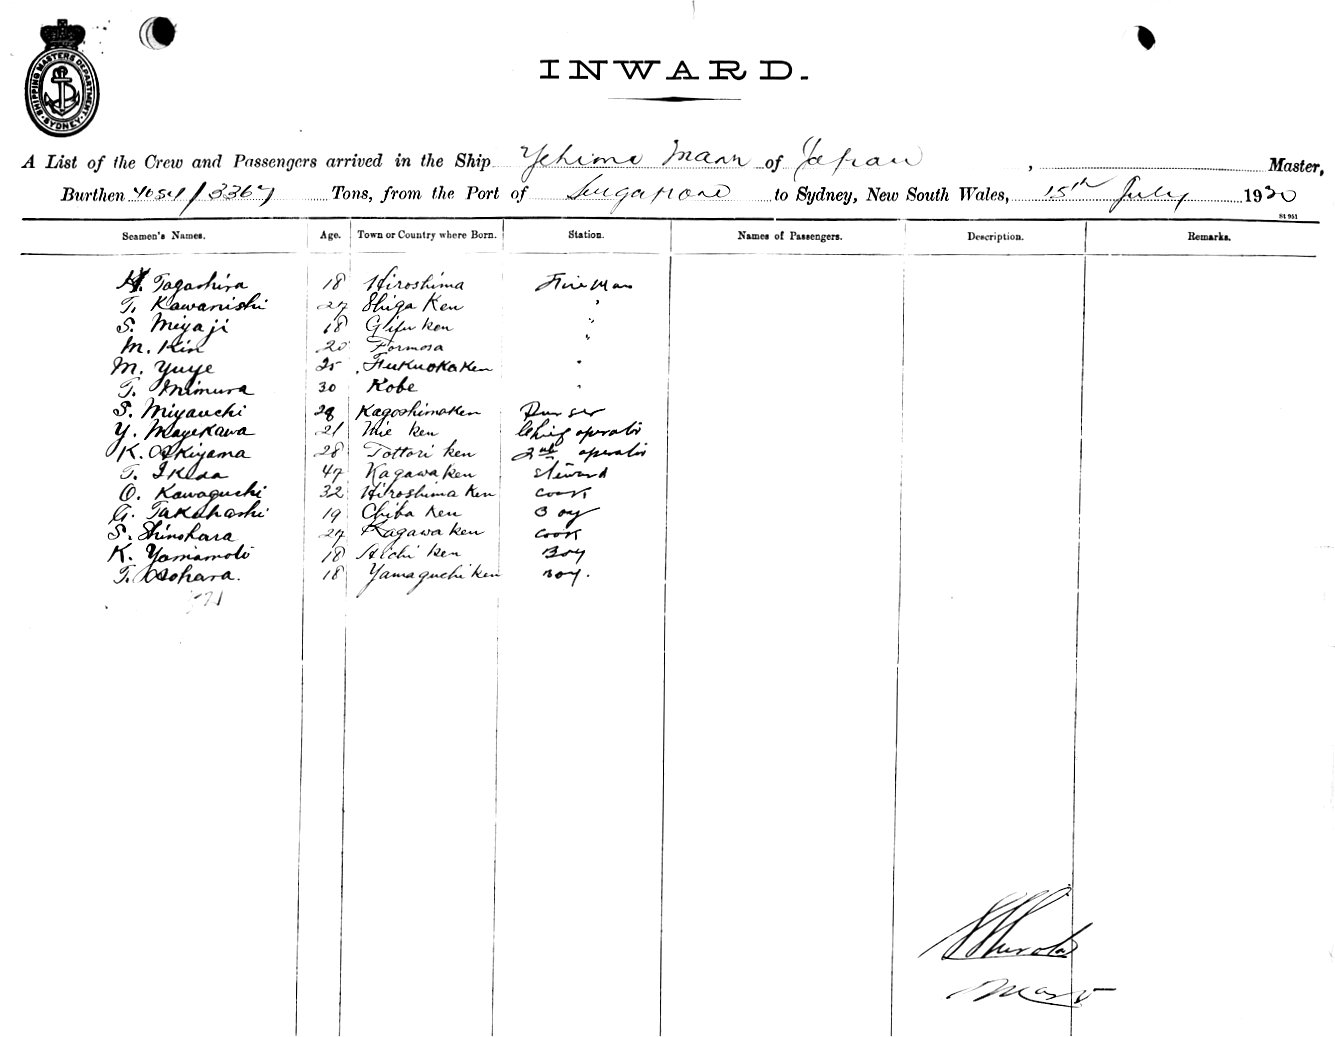 SHIPPING MASTERS DEPARTMENT SYDNEY
INWARD.
A List of the Crew and Passengers arrived in the Ship Yehime Maru of Japan, Master,
Burthen / 3367 Tons, from the Port of Singapore to Sydney, New South Wales, 15th July 1930
St 951
Seamen's Names. Age. Town or Country where Born. Station. Names of Passengers. Description. Remarks.
H. Tagashira 18 Hiroshima Fireman
T. Kawanishi 27 Shiga Ken "
S. Miyaji 18 Gifu ken "
M. Kin 20 Formosa "
M. Yuye 25 Fukuoka Ken "
T. Mimura 30 Kobe "
S. Miyauchi 28 Kagoshima Ken Purser
Y. Mayekawa 21 Mie ken Chief operator
K. Akiyama 28 Tottori ken 2nd operator
T. Ikeda 47 Kagawa ken Steward
O. Kawaguchi 32 Hiroshima Ken cook
G. Takahashi 19 Chiba Ken Boy
S. Shinohara 27 Kagawa ken cook
K. Yamamoto 18 Aichi ken Boy
T. 18 Yamaguchi ken Boy.